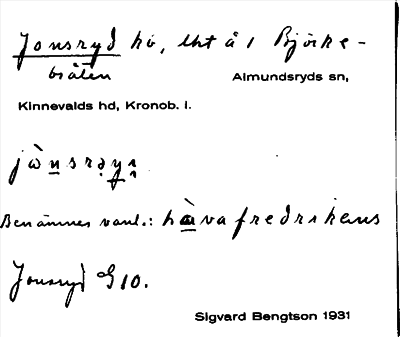 Jonsryd hö, lht å 1 Björke-
bråten
Almundsryds sn,
Kinnevalds hd, Kronob. l.
Benämnes vanl.: håvafredrikens
Jonsryd G 10.
Sigvard Bengtson 1931